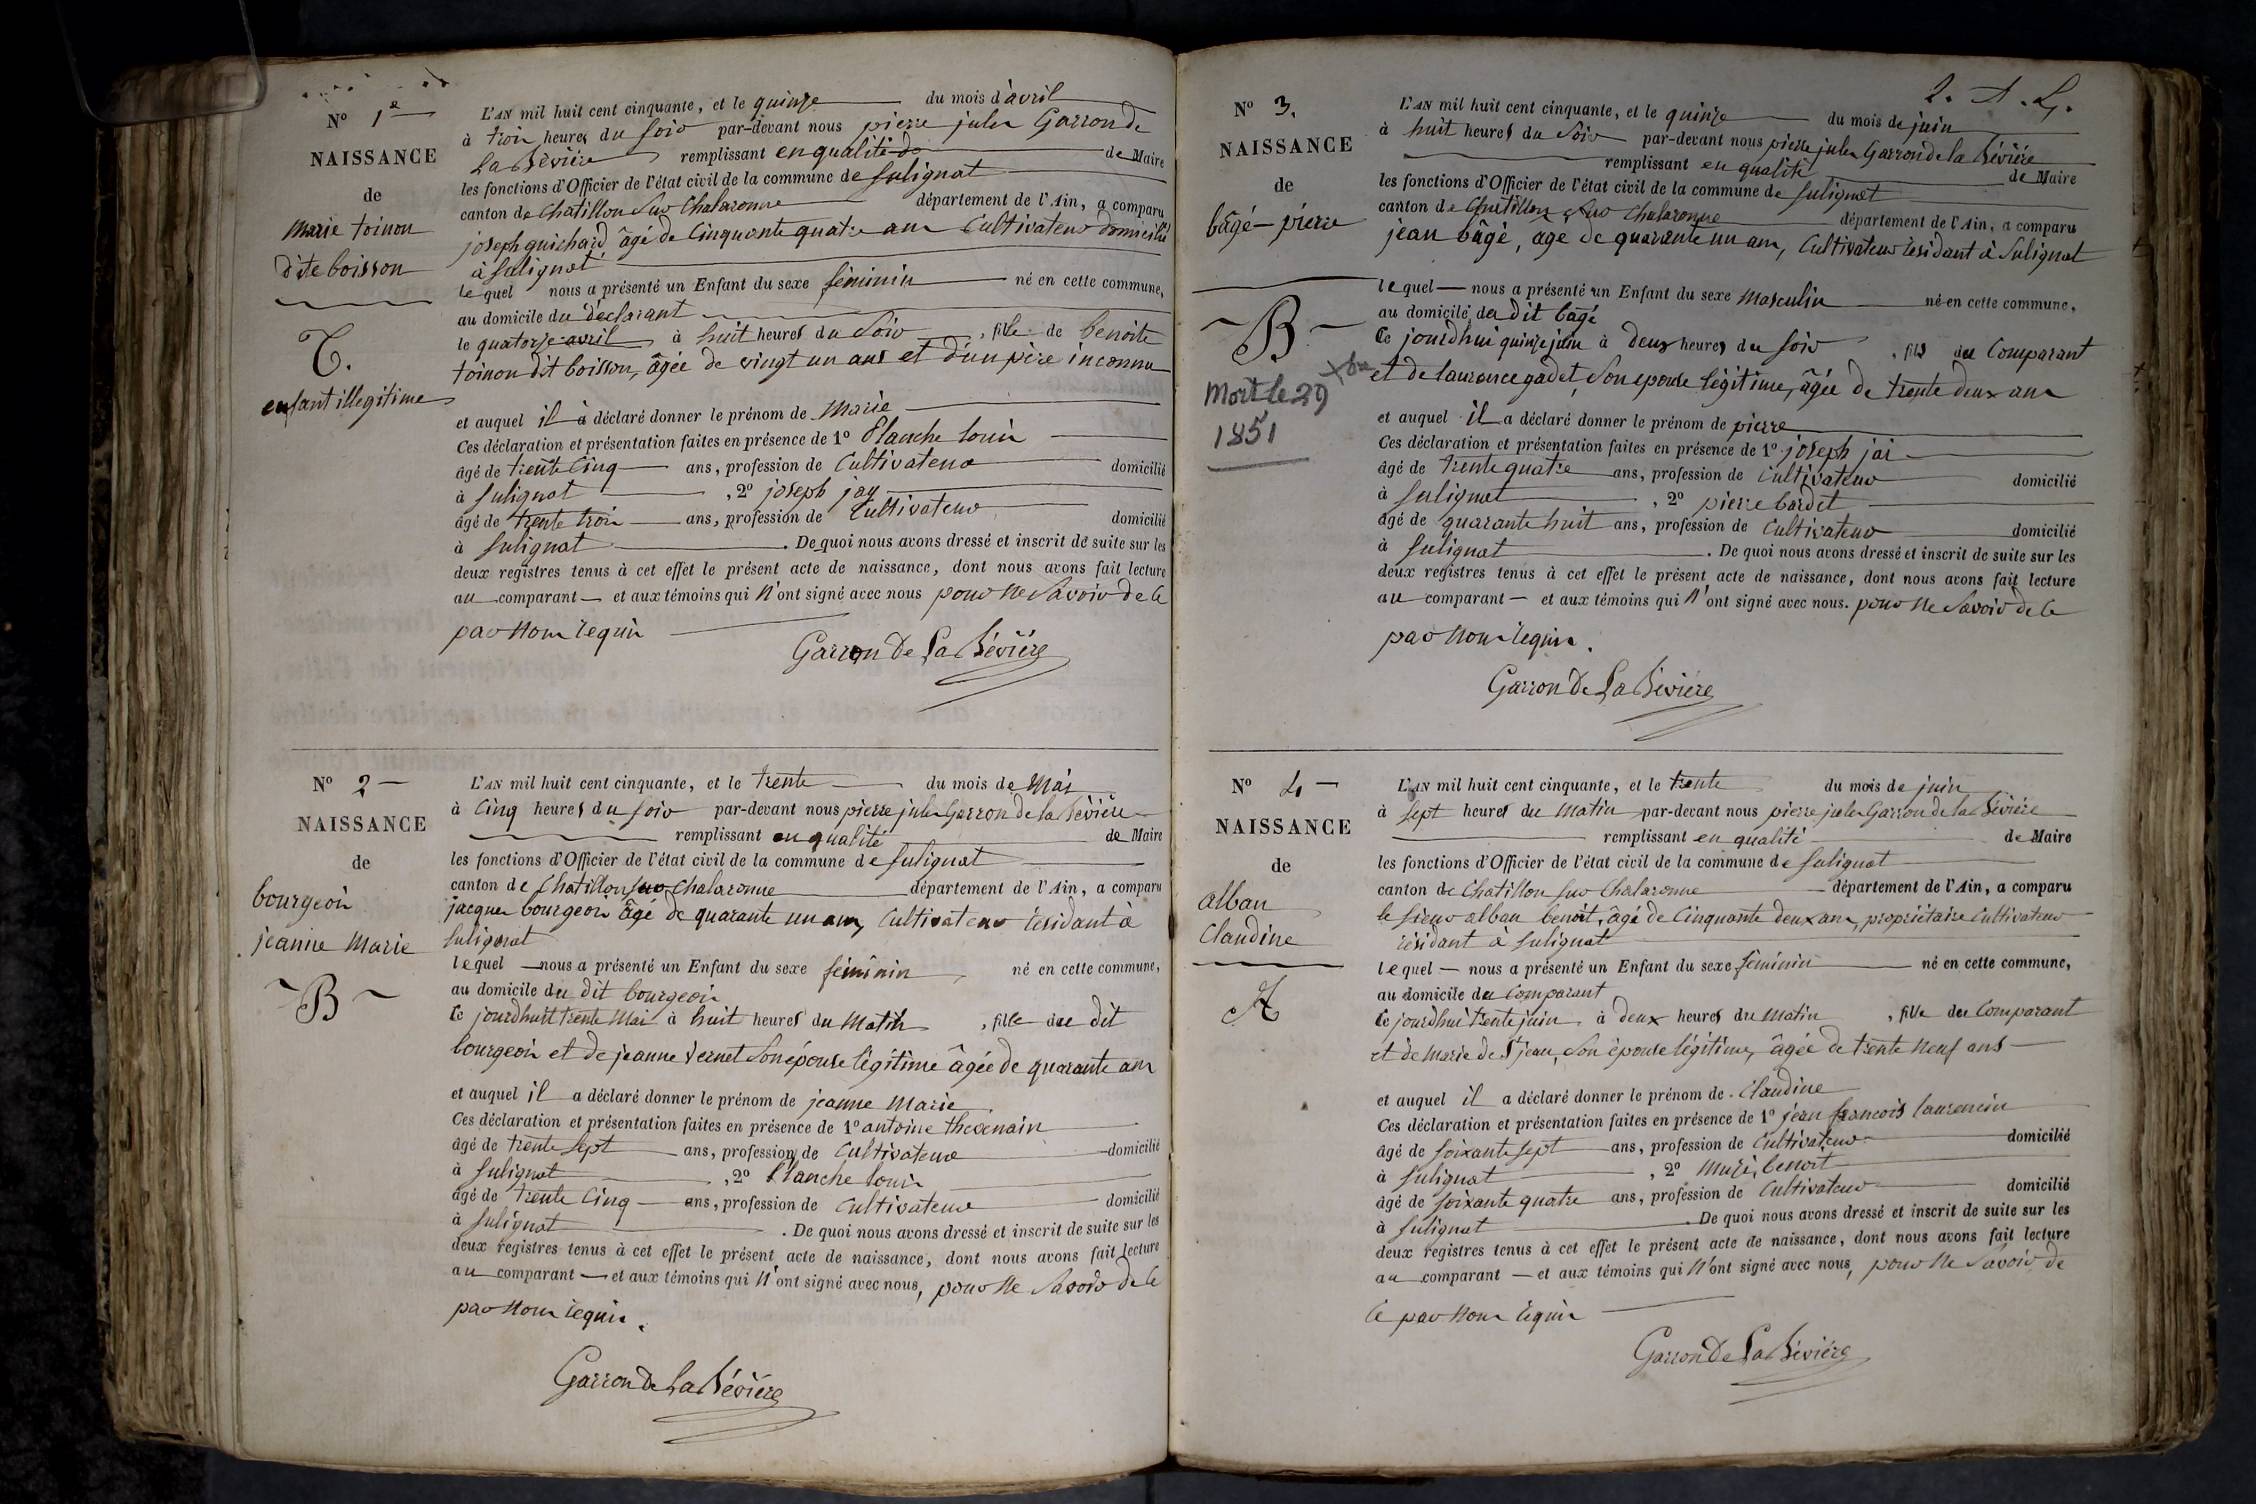 N° 1e
NAISSANCE
de
Marie toinon
dite boisson
T.
enfant illegitime
L'AN mil huit cent cinquante, et le quinze du mois d'avril
à trois heures du soir par-devant nous pierre jules Garron de
La Bévière remplissant en qualité de de Maire
les fonctions d'Officier de l'état civil de la commune de Sulignat
canton de Chatillon sur Chalaronne département de l'Ain, a comparu
joseph guichard âgé de Cinquante quatre ans Cultivateur domicilié
à Sulignat
lequel nous a présenté un Enfant du sexe féminin né en cette commune,
au domicile du déclarant
le quatorze avril à huit heures du Soir, fille de benoite
toinon dit boisson, âgée de vingt un ans et d'un père inconnu
et auquel il à déclaré donner le prénom de Marie
Ces déclaration et présentation faites en présence de 1° Planche louis
âgé de trente Cinq ans, profession de Cultivateur domicilié
à Sulignat, 2° joseph jay
âgé de trente trois ans, profession de Cultivateur domicilié
à Sulignat. De quoi nous avons dressé et inscrit de suite sur les
deux registres tenus à cet effet le présent acte de naissance, dont nous avons fait lecture
au comparant et aux témoins qui n'ont signé avec nous pour ne Savoir de ce
par nous requis
Garron De La Bévière
N° 2
NAISSANCE
de
bourgeois
jeanne Marie
B
L'AN mil huit cent cinquante, et le trente du mois de Mai
à Cinq heures du soir par-devant nous pierre jules Garron de la Bévière
remplissant en qualité de Maire
les fonctions d'Officier de l'état civil de la commune de Sulignat
canton de Chatillon sur Chalaronne département de l'Ain, a comparu
jacques bourgeois âgé de quarante un ans, Cultivateur résidant à
Sulignat
lequel nous a présenté un Enfant du sexe féminin, né en cette commune,
au domicile du dit bourgeois
Ce jourdhuit trente Mai à huit heures du Matin, fille du dit
bourgeois et de jeanne vernet Son épouse légitime âgée de quarante ans
et auquel il a déclaré donner le prénom de jeanne Marie
Ces déclaration et présentation faites en présence de 1° antoine thevenain
âgé de trente sept ans, profession de Cultivateur domicilié
à Sulignat, 2° Planche louis
âgé de trente Cinq ans, profession de Cultivateur domicilié
à Sulignat. De quoi nous avons dressé et inscrit de suite sur les
deux registres tenus à cet effet le présent acte de naissance, dont nous avons fait lecture
au comparant et aux témoins qui n'ont signé avec nous, pour ne Savoir de ce
par nous requis.
Garron de La Bévière
2. A. L.
N° 3.
NAISSANCE
de
bâgé pierre
B
Mort le 29 xbre
1851
L'AN mil huit cent cinquante, et le quinze du mois de juin
à huit heures du Soir par-devant nous pierre jules Garron de la Bévière
remplissant en qualité de Maire
les fonctions d'Officier de l'état civil de la commune de Sulignat
canton de Chatillon sur Chalaronne département de l'Ain, a comparu
jean bâgé, age de quarante un ans, Cultivateur résidant à Sulignat
lequel nous a présenté un Enfant du sexe Masculin né en cette commune,
au domicile du dit bagé
Ce jourdhui quinze juin à deux heures du soir, fils du Comparant
et de laurence gadet, Son epouse légitime, âgée de trente deux ans
et auquel il a déclaré donner le prénom de pierre
Ces déclaration et présentation faites en présence de 1° joseph jai
âgé de trente quatre ans, profession de Cultivateur domicilié
à Sulignat, 2° pierre bardet
âgé de quarante huit ans, profession de Cultivateur domicilié
à Sulignat. De quoi nous avons dressé et inscrit de suite sur les
deux registres tenus à cet effet le présent acte de naissance, dont nous avons fait lecture
au comparant et aux témoins qui n'ont signé avec nous. pour ne Savoir de ce
par nous requis.
Garron De La Bévière
N° 4
NAISSANCE
de
alban
Claudine
A
L'AN mil huit cent cinquante, et le trente du mois de juin
à sept heures du Matin par-devant nous pierre jules Garron de la Bévière
remplissant en qualité de Maire
les fonctions d'Officier de l'état civil de la commune de Sulignat
canton de Chatillon sur Chalaronne département de l'Ain, a comparu
le Sieur alban benoit, âgé de Cinquante deux ans, propriétaire Cultivateur
résidant à Sulignat
lequel nous a présenté un Enfant du sexe féminin né en cette commune,
au domicile du Comparant
Ce jourdhui trente juin à deux heures du Matin, fille du Comparant
et de Marie de St jean, Son épouse légitime, âgée de trente neuf ans
et auquel il a déclaré donner le prénom de Claudine
Ces déclaration et présentation faites en présence de 1° jean francois laurencin
âgé de soixante sept ans, profession de Cultivateur domicilié
à Sulignat, 2° benoit
âgé de soixante quatre ans, profession de Cultivateur domicilié
à Sulignat. De quoi nous avons dressé et inscrit de suite sur les
deux registres tenus à cet effet le présent acte de naissance, dont nous avons fait lecture
au comparant et aux témoins qui n'ont signé avec nous, pour ne Savoir de
ce par nous requis
Garron De La Bévière